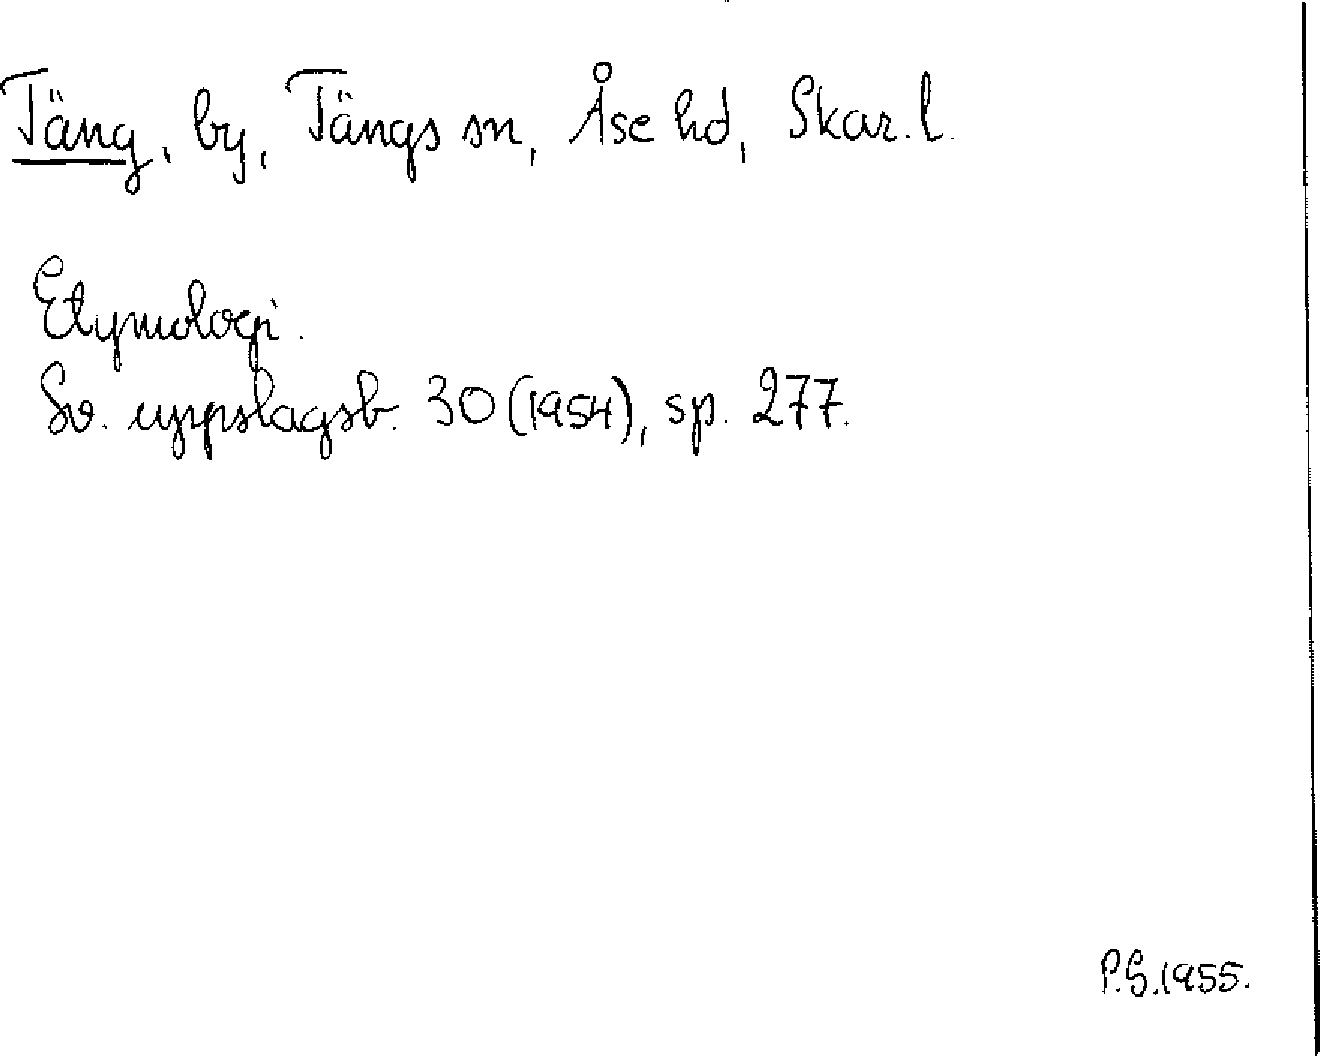 Täng, by, Tängs sn, Åse hd, Skar. l.
Etymologi.
Sv. uppslagsb. 30 (1954), sp. 277.
P.S. 1955.